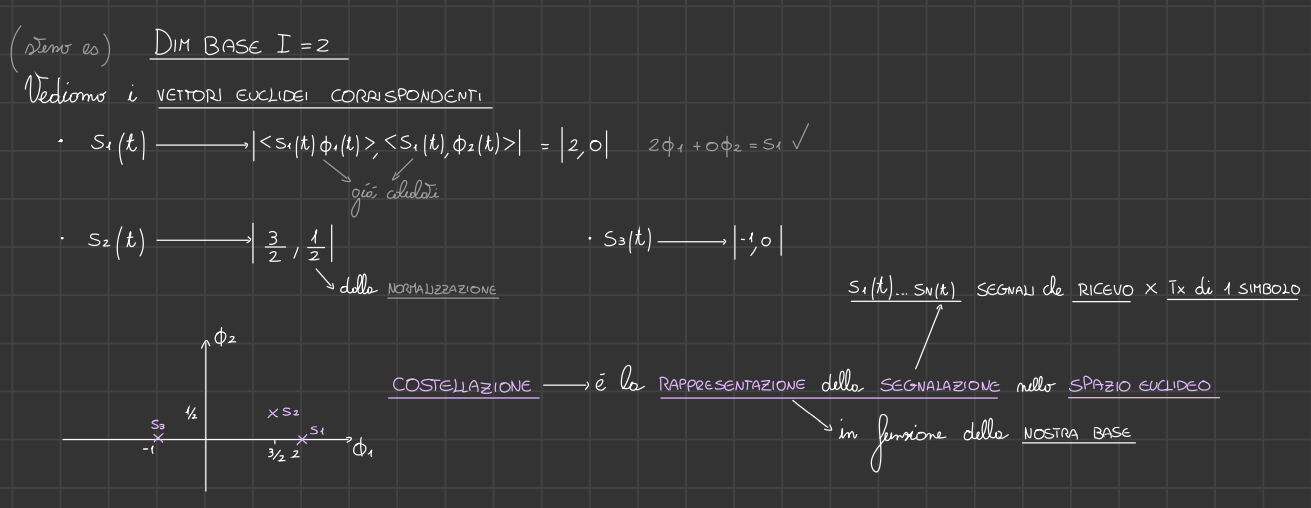 (stesso es) DIM BASE I = 2
Vediamo i VETTORI EUCLIDEI CORRISPONDENTI
• S1(t) → |<S1(t) ϕ1(t)>, <S1(t), ϕ2(t)>| = |2, 0| 2ϕ1 + 0ϕ2 = S1 ✓
già calcolati
• S2(t) → |3/2, 1/2| • S3(t) → |-1, 0|
dalla NORMALIZZAZIONE
S1(t)... SN(t) SEGNALI che RICEVO × Tx di 1 SIMBOLO
ϕ2
COSTELLAZIONE → é la RAPPRESENTAZIONE della SEGNALAZIONE nello SPAZIO EUCLIDEO
1/2 × S2
S3 S1
in funzione della NOSTRA BASE
-1 3/2 2 ϕ1